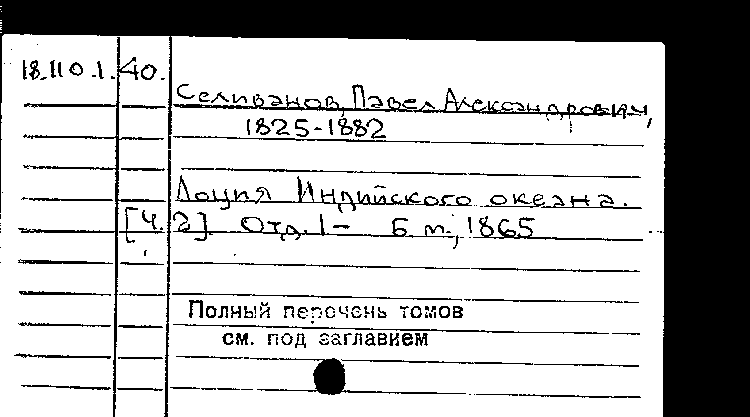 18.110.1.40.
Селиванов, Павел Александрович,
1825-1882
Лоция Индийского океана.
[Ч. 2]. Отд. 1 - Б. м., 1865
Полный перечень томов
см. под заглавием